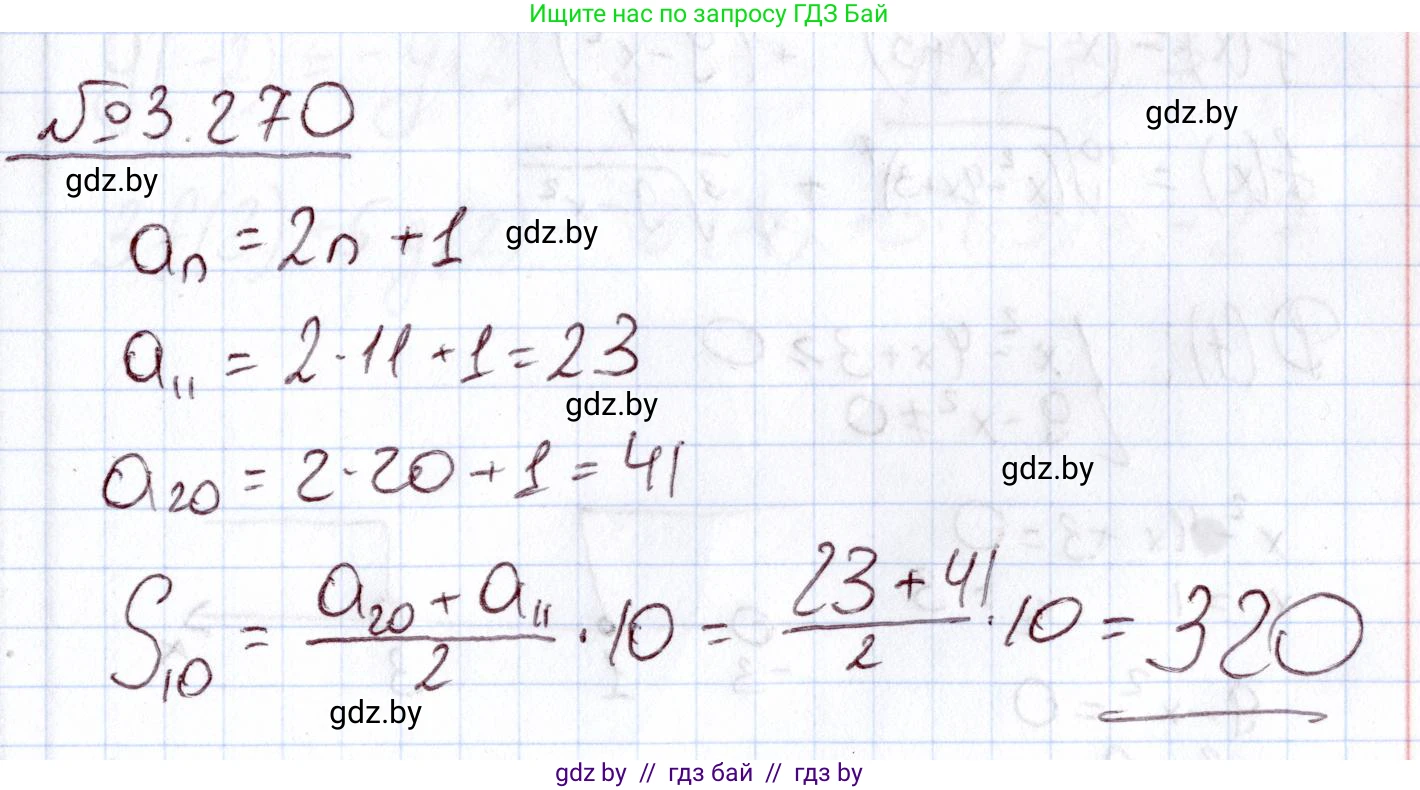 Ищите нас по запросу ГДЗ Бай
№3.270
gdz.by
gdz.by
aₙ = 2n + 1
gdz.by
a₁₁ = 2·11 + 1 = 23
gdz.by
a₂₀ = 2·20 + 1 = 41
gdz.by
S₁₀ = (a₂₀ + a₁₁)/2 · 10 = (23 + 41)/2 · 10 = 320
gdz.by
gdz by // гдз бай // гдз by